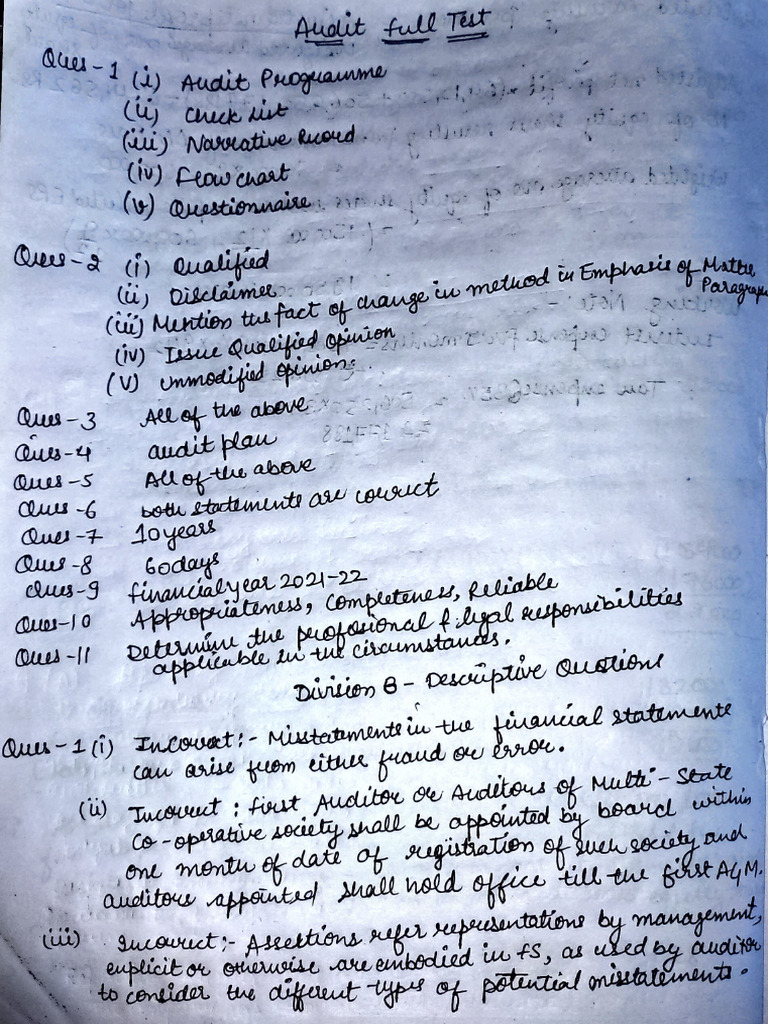 Audit Full Test
Ques-1 (i) Audit Programme
(ii) Check List
(iii) Narrative Record
(iv) Flow chart
(v) Questionnaire
Ques-2 (i) Qualified
(ii) Disclaimer
(iii) Mention the fact of change in method in Emphasis of Matter Paragraph
(iv) Issue Qualified Opinion
(v) unmodified opinion.
Ques-3 All of the above
Ques-4 audit plan
Ques-5 All of the above
Ques-6 both statements are correct
Ques-7 10 years
Ques-8 60 days
Ques-9 financial year 2021-22
Ques-10 Appropriateness, Completeness, Reliable
Ques-11 Determine the profosional & legal responsibilities
applicable in the circumstances.
Division B - Descriptive Questions
Ques-1 (i) Incorrect :- Misstatements in the financial statements
can arise from either fraud or error.
(ii) Incorrect : first Auditor or Auditors of Multi-State
Co-operative society shall be appointed by board within
one month of date of registration of such society and
auditors appointed shall hold office till the first AGM.
(iii) Incorrect :- Assertions refer representations by management,
explicit or otherwise are embodied in FS, as used by auditor
to consider the different types of potential misstatements.